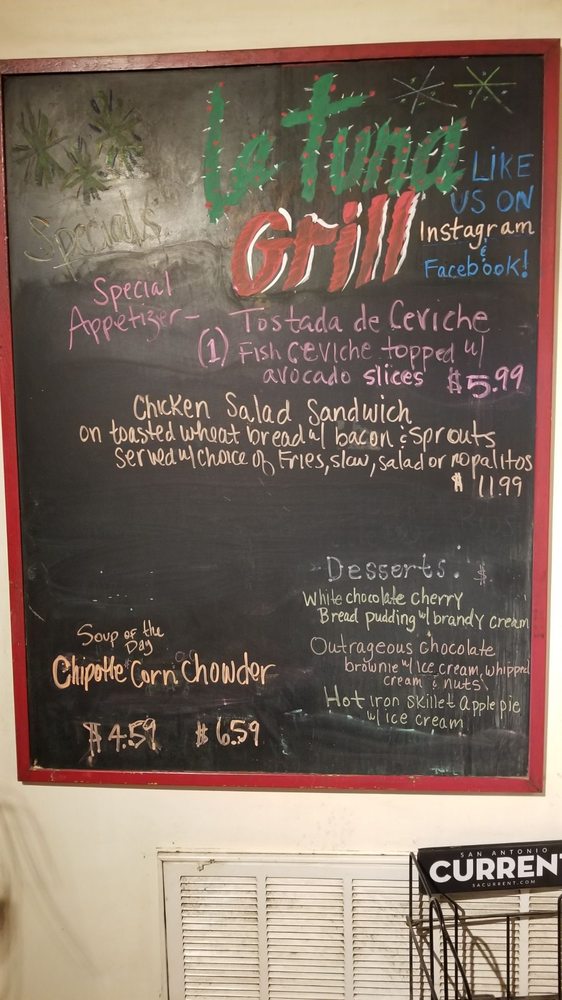 La Tuna
Grill
LIKE
US ON
Instagram
&
Facebook!
Specials
Special
Appetizer -
Tostada de Ceviche
(1) Fish Ceviche topped w/
avocado slices $5.99
Chicken Salad Sandwich
on toasted wheat bread w/ bacon & sprouts
served w/ choice of Fries, slaw, salad or nopalitos
$ 11.99
Desserts. $
White chocolate cherry
Bread pudding w/ brandy cream
Outrageous chocolate
brownie w/ ice cream, whipped
cream & nuts
Hot iron skillet apple pie
w/ ice cream
Soup of the
Day
Chipotle Corn Chowder
$ 4.59 $ 6.59
SAN ANTONIO
CURRENT
SACURRENT.COM